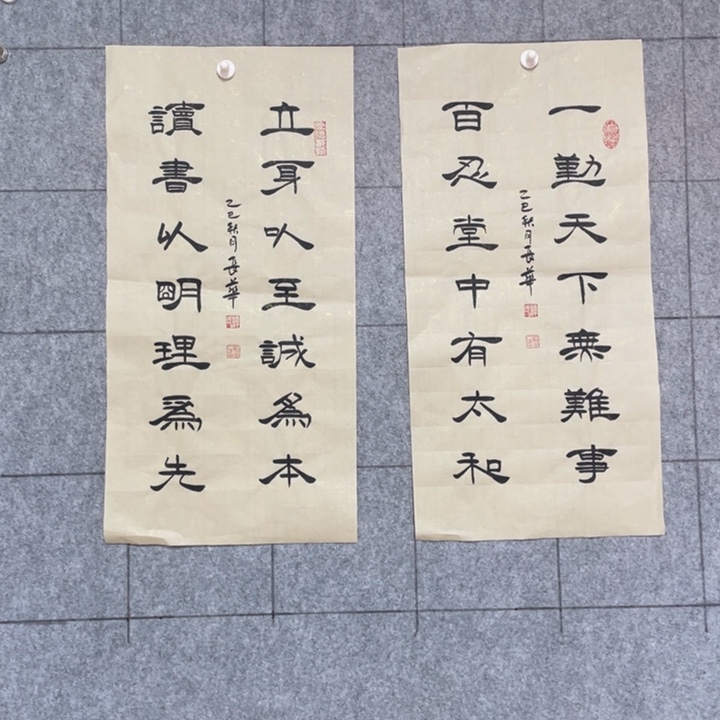 一勤天下無難事
百忍堂中有太和
乙巳秋月長華
立身以至誠為本
讀書以明理爲先
乙巳秋月長華